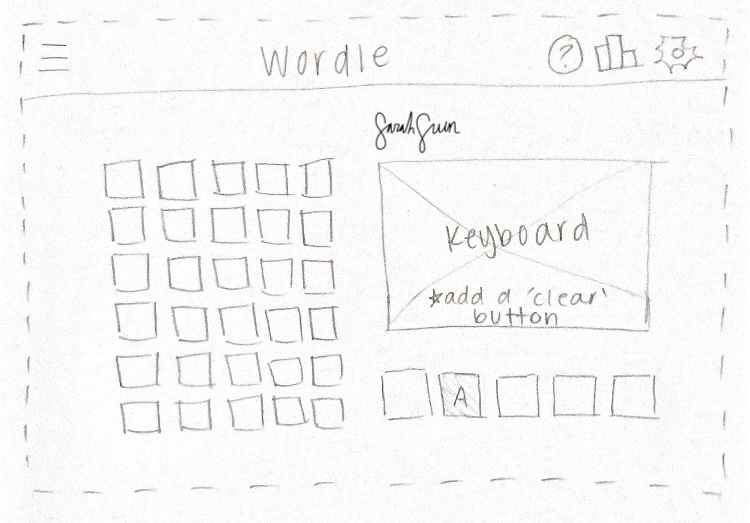 Wordle
?
Sarah Guen
Keyboard
*add a 'clear'
button
A